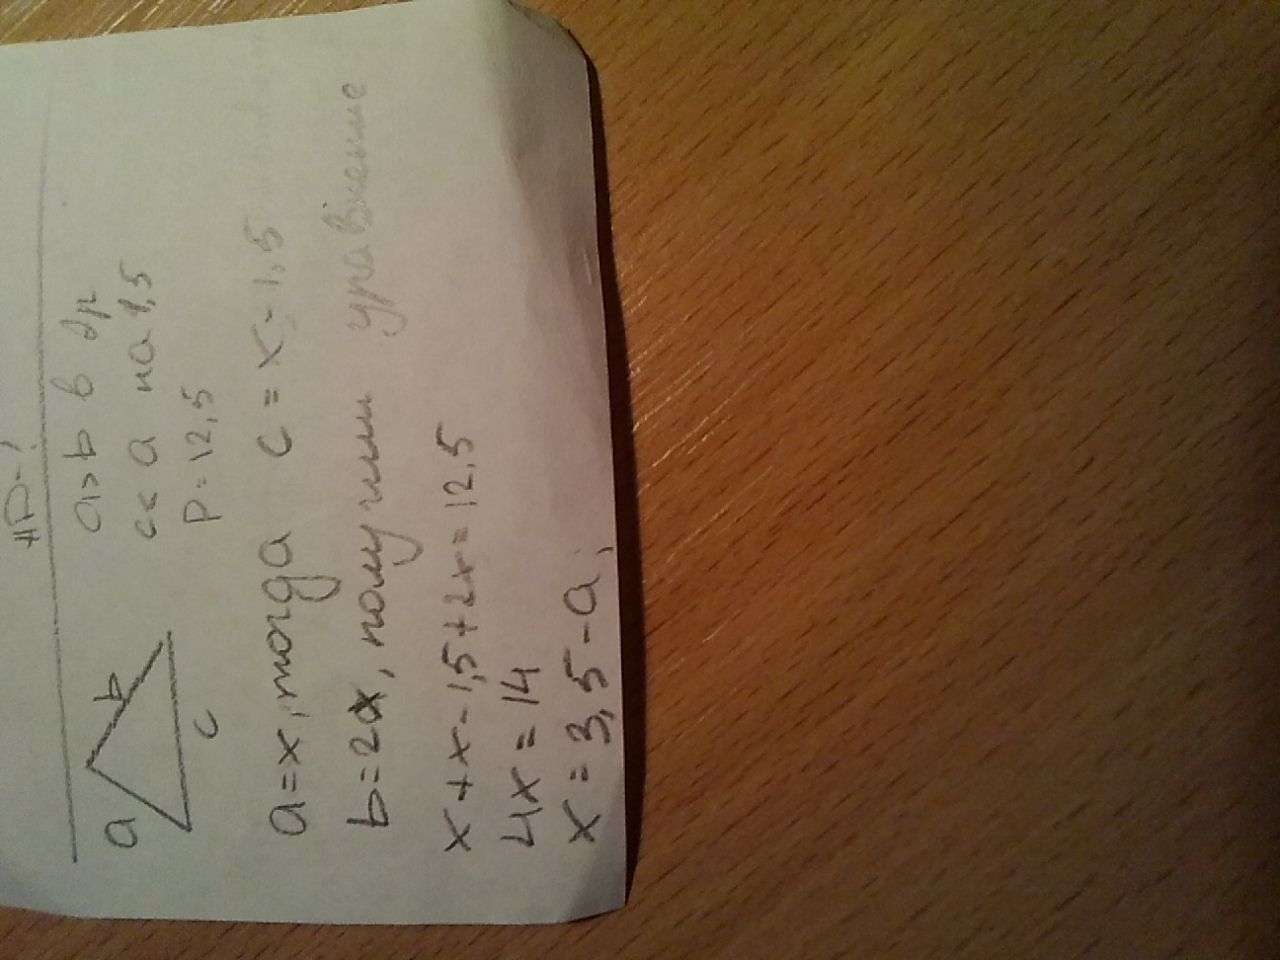 a > b в 2р
c < a на 1,5
P = 12,5
a
b
c
a = x, тогда c = x - 1,5
b = 2x, получим уравнение
x + x - 1,5 + 2x = 12,5
4x = 14
x = 3,5 - a;